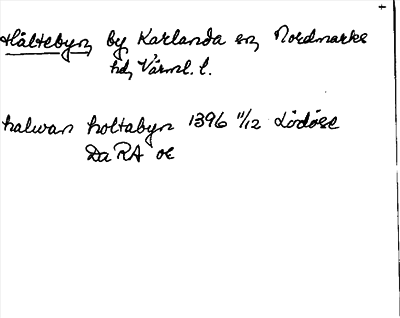 Håltebyn by Karlanda sn Nordmarks
hd, Värml. l.
halwan holtabyn 1396 11/12 Lödöse
Da RA oc